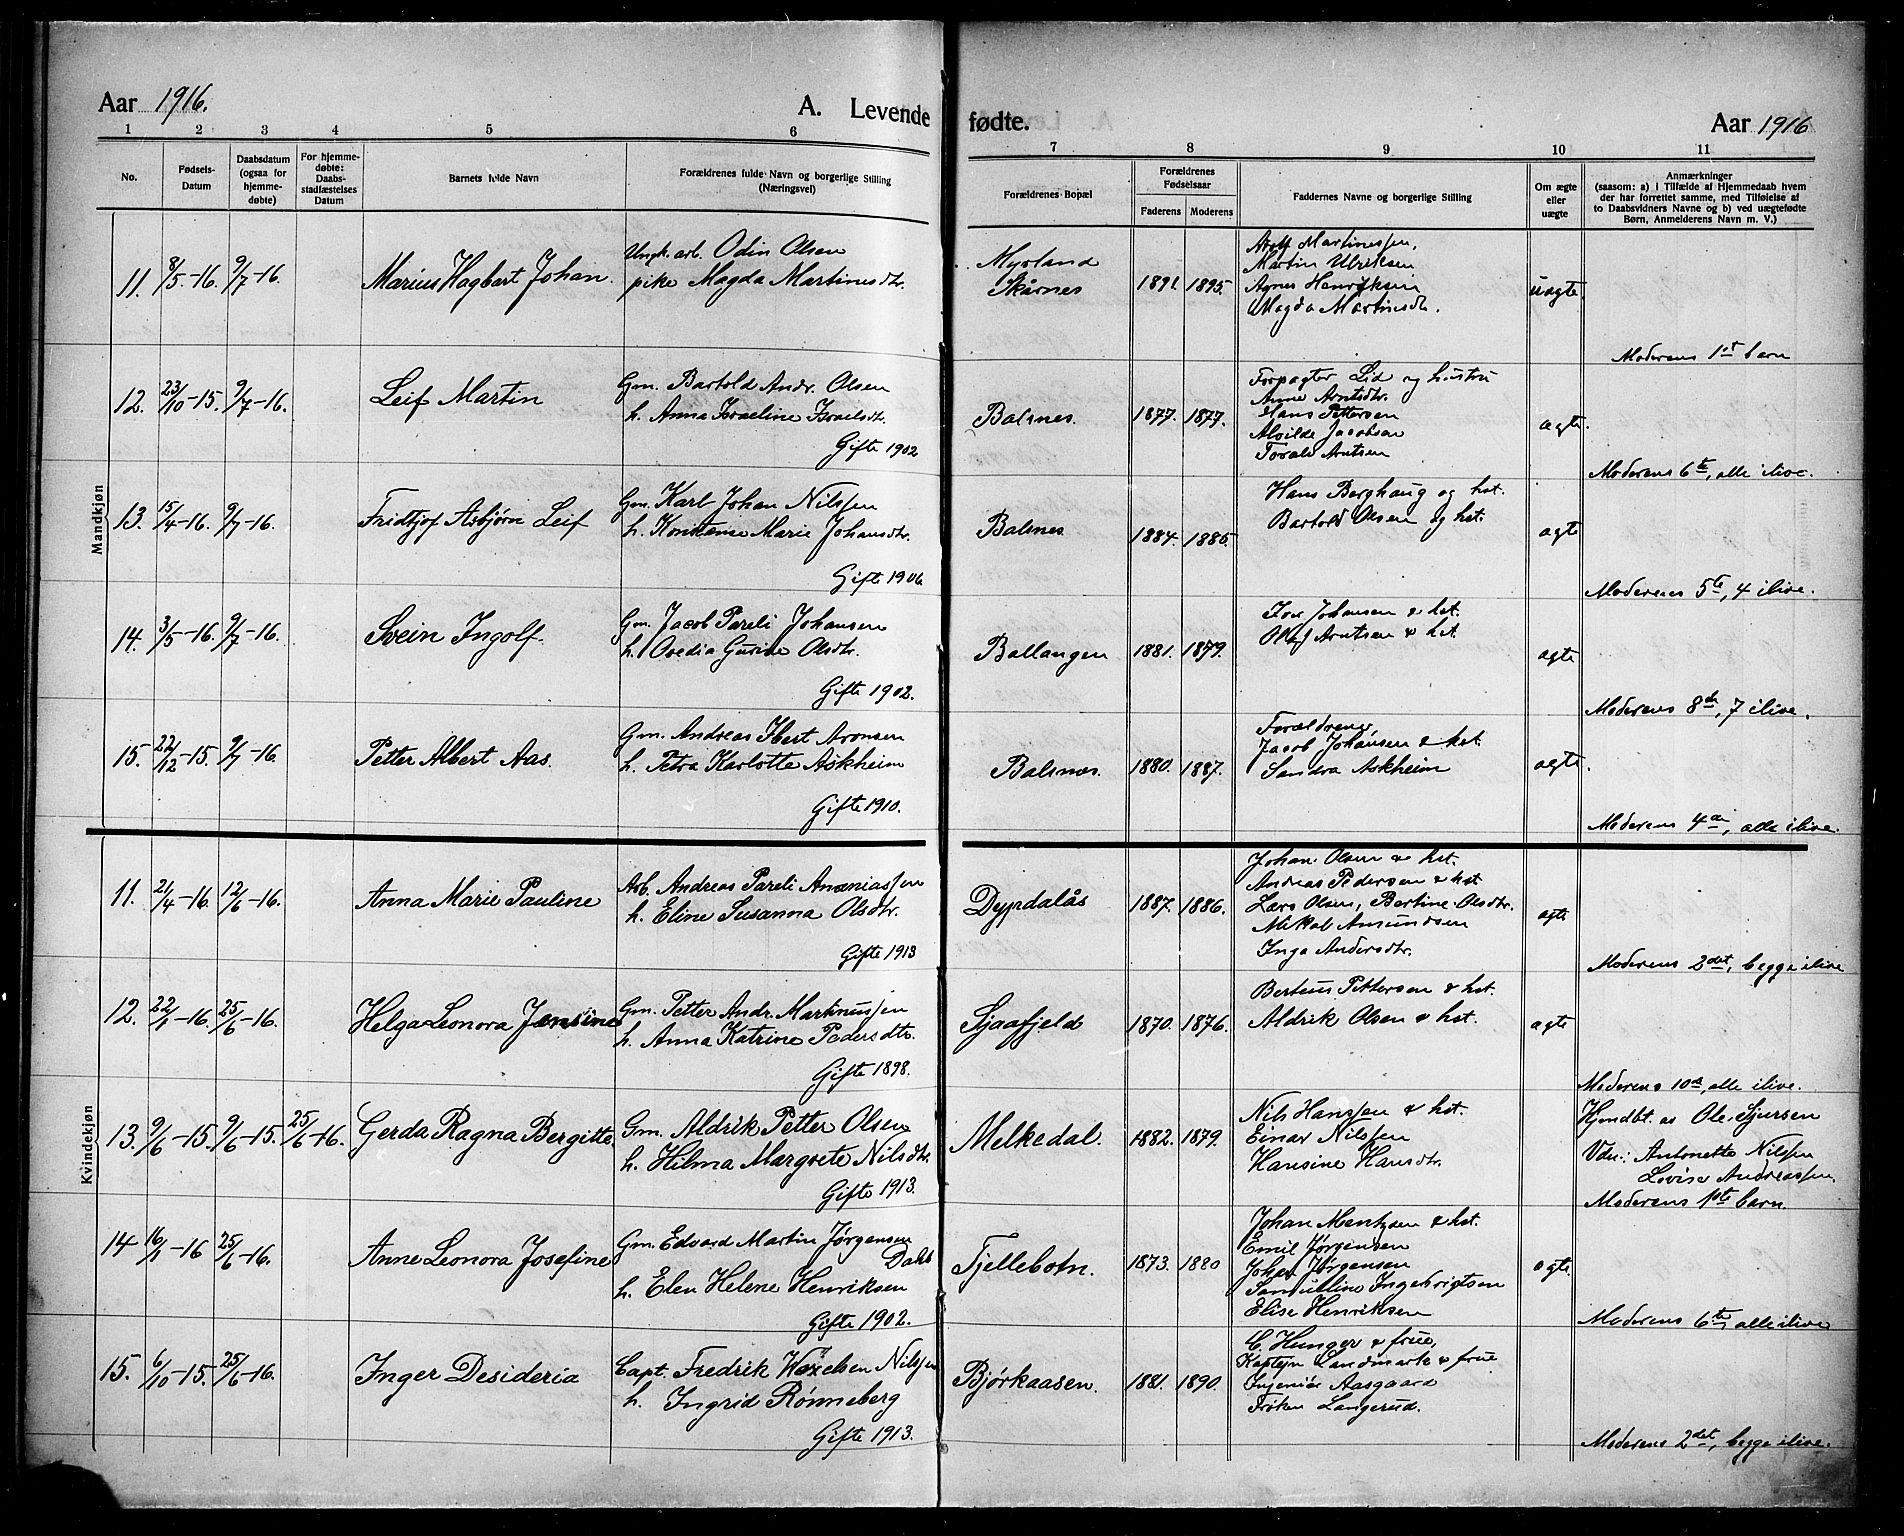 Aar 1916.
A. Levende
fødte.
Aar 1916
1 2 3 4 5 6
7 8 9 10 11
No.
Fødsels-
Datum
Daabsdatum
(ogsaa for
hjemme-
døbte)
For hjemme-
døbte:
Daabs-
stadfæstelses
Datum
Barnets fulde Navn
Forældrenes fulde Navn og borgerlige Stilling
(Næringsvei)
Forældrenes Bopæl
Forældrenes
Fødselsaar
Faderens
Moderens
Faddernes Navne og borgerlige Stilling
Om ægte
eller
uægte
Anmærkninger
(saasom: a) i Tilfælde af Hjemmedaab hvem
der har forrettet samme, med Tilføielse af
to Daabsvidners Navne og b) ved uægtefødte
Børn, Anmelderens Navn m. V.)
Mandkjøn
11. 8/5-16 9/7-16. Marius Hagbart Johan.
Ungk. arb. Odin Olsen
pike Magda Martinesdtr.
Myrland
Skårnes
1891. 1895.
Adolf Martinessen,
Martin Ulriksen
Agnes Henriksen
Magda Martinesdtr.
uægte
Moderens 1st barn
12. 23/10-15. 9/7-16. Leif Martin
Gm. Bartold Andr. Olsen
h. Anna Israeline Israelsdtr.
Gifte 1902
Balsnes. 1877. 1877.
Forpagter Lid og hustru
Anne Arntsdtr.
Hans Pettersen
Alvilde Jacobsen
Torald Arntsen
ægte.
Moderens 6te, alle ilive.
13. 15/4-16. 9/7-16. Fridtjof Asbjørn Leif
Gm. Karl Johan Nilssen
h. Konstanse Marie Johansdtr.
Gifte 1906
Balsnes 1884. 1885.
Hans Berghaug og hst.
Bartold Olsen og hst.
ægte
Moderens 5te, 4 ilive.
14. 3/5-16. 9/7-16. Svein Ingolf.
Gm. Jacob Pareli Johansen
h. Ovedia Gurine Olsdtr.
Gifte 1902.
Ballangen 1881. 1879.
Iver Johansen & hst.
Oluf Arntsen & hst.
ægte
Moderens 8de, 7 ilive.
15. 22/12-15. 9/7-16. Petter Albert Aas.
Gm. Andreas Ibert Aronsen
h. Petra Karlotte Askheim
Gifte 1910.
Balsnes. 1880. 1887.
Forældrene,
Jacob Johansen & hst.
Sandra Askheim
ægte.
Moderens 4de, alle ilive.
Kvindekjøn
11. 21/4-16 12/6-16. Anna Marie Pauline
Arb. Andreas Pareli Ananiassen
h. Eline Susanna Olsdtr.
Gifte 1913
Dypdalås 1887. 1886.
Johan Olsen & hst.
Andreas Pedersen & hst
Lars Olsen, Bertine Olsdtr.
Mikal Amundsen
Inga Andersdtr.
ægte
Moderens 2det, begge ilive
12. 22/1-16. 25/6-16. Helga Leonora Jensine
Gm. Petter Andr. Martinussen
h. Anna Katrine Pedersdtr.
Gifte 1898.
Sjaafjeld 1870. 1876.
Berteus Pettersen & hst.
Aldrik Olsen & hst.
ægte
Moderens 10de, alle ilive.
13. 9/6-15. 9/6-15. 25/6-16. Gerda Ragna Bergitte
Gm. Aldrik Petter Olsen
h. Hilma Margrete Nilsdtr.
Gifte 1913.
Melkedal. 1882. 1879.
Nils Hanssen & hst.
Einar Nilssen
Hansine Hansdtr.
Hjmdbt. av Ole Sjursen
Vdn: Antonette Nilssen
Lovise Andreassen
Moderens 1ste barn.
14 16/1-16 25/6-16. Anne Leonora Josefine
Gm. Edvard Martin Jørgensen
Dahl
h. Elen Helene Henriksen
Gifte 1902.
Tjellebotn. 1873. 1880
Johan Mentzsen & hst.
Emil Jørgensen
Johan Jørgensen
Ingebrigtsen
Elise Henriksen
ægte.
Moderens 6te, alle ilive
15. 6/10-15. 25/6-16. Inger Desideria
Capt. Fredrik Wexelsen Nilssen
h. Ingrid Rønneberg
Gifte 1913.
Bjørkaasen. 1881. 1890.
C. Hunger & frue,
Kaptejn Landmark & frue
Ingeniør Aasgaard
Frøken Langerud.
Moderens 2det, begge ilive.